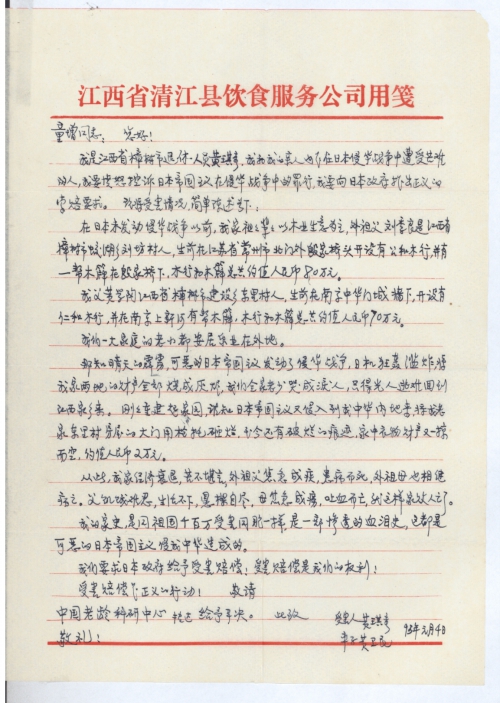 江西省清江县饮食服务公司用笺
童增同志：您好！
我是江西省樟树市退休人员黄琪，我和我的亲人均在日本侵华战争中遭受苦难
的人，我要愤怒控诉日本帝国主义在侵华战争中的罪行，我要向日本政府提出正义的
赔要求。现将受害情况，简单陈述如下：
在日本发动侵华战争以前，我家祖辈以木业生意为主，外祖父刘是江西省
樟树市刘坊村人，生前在江苏省常州市北门外桥头开设有公和木行，并有
一帮木簰在桥下，木行和木簰总共约值人民币80万元。
我父黄江西省樟树市建设乡东里村人，生前在南京中华门城墙下，开设有
仁和木行，并在南京上新河有帮木簰，木行和木簰总共约值人民币70万元。
我们一大家庭的老小都安居乐业在外地。
那知晴天的霹雳，可恶的日本帝国主义发动了侵华战争，日机狂轰滥炸将
我家两地的财产全部烧成灰烬，我们全家老少哭成泪人，只得先人逃难回到
江西家乡来。刚重建起家园，谁知日本帝国主义又侵入到我中华内地来，将我老
家东里村房屋的大门用枪托砸烂，至今还有砸烂的痕迹，家中衣物财产又一掠
而空，约值人民币2万元。
从此，我家经济衰退，苦不堪言，外祖父焦急成疾，患病而死，外祖母也相继
病亡。父亲忧愁，生活不下，悬樑自尽，母焦急成痨，吐血而亡，就这样家败人亡了。
我的家史，是同祖国千百万受害同胞一样，是一部惨遭的血泪史，这都是
可恶的日本帝国主义侵我中华造成的。
我们要求日本政府给予受害赔偿！受害赔偿是我们的权利！
受害赔偿是正义的行动！ 敬请
中国老龄科研中心 转达 给予解决。 此致
敬礼！
受害人 黄琪
黄卫民
93年3月4日